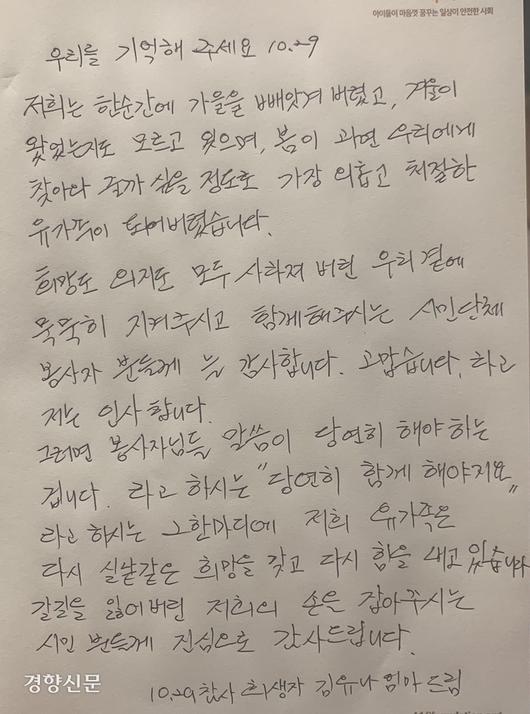 아이들이 마음껏 꿈꾸는 일상이 안전한 사회
우리를 기억해 주세요 10.29
저희는 한순간에 가을을 빼앗겨 버렸고, 겨울이
왔었는지도 모르고 있으며, 봄이 과연 우리에게
찾아와 줄까 싶을 정도로 가장 외롭고 처절한
유가족이 되어버렸습니다.
희망도 의지도 모두 사라져 버린 우리 곁에
묵묵히 지켜주시고 함께해주시는 시민단체
봉사자 분들께 늘 감사합니다. 고맙습니다. 하고
저는 인사합니다.
그러면 봉사자님들 말씀이 당연히 해야 하는
겁니다. 라고 하시는 "당연히 함께 해야지요"
라고 하시는 그한마디에 저희 유가족은
다시 실낱같은 희망을 갖고 다시 힘을 내고 있습니다
갈길을 잃어버린 저희의 손을 잡아주시는
시민 분들께 진심으로 감사드립니다.
10.29참사 희생자 김유나 엄마 드림
경향신문